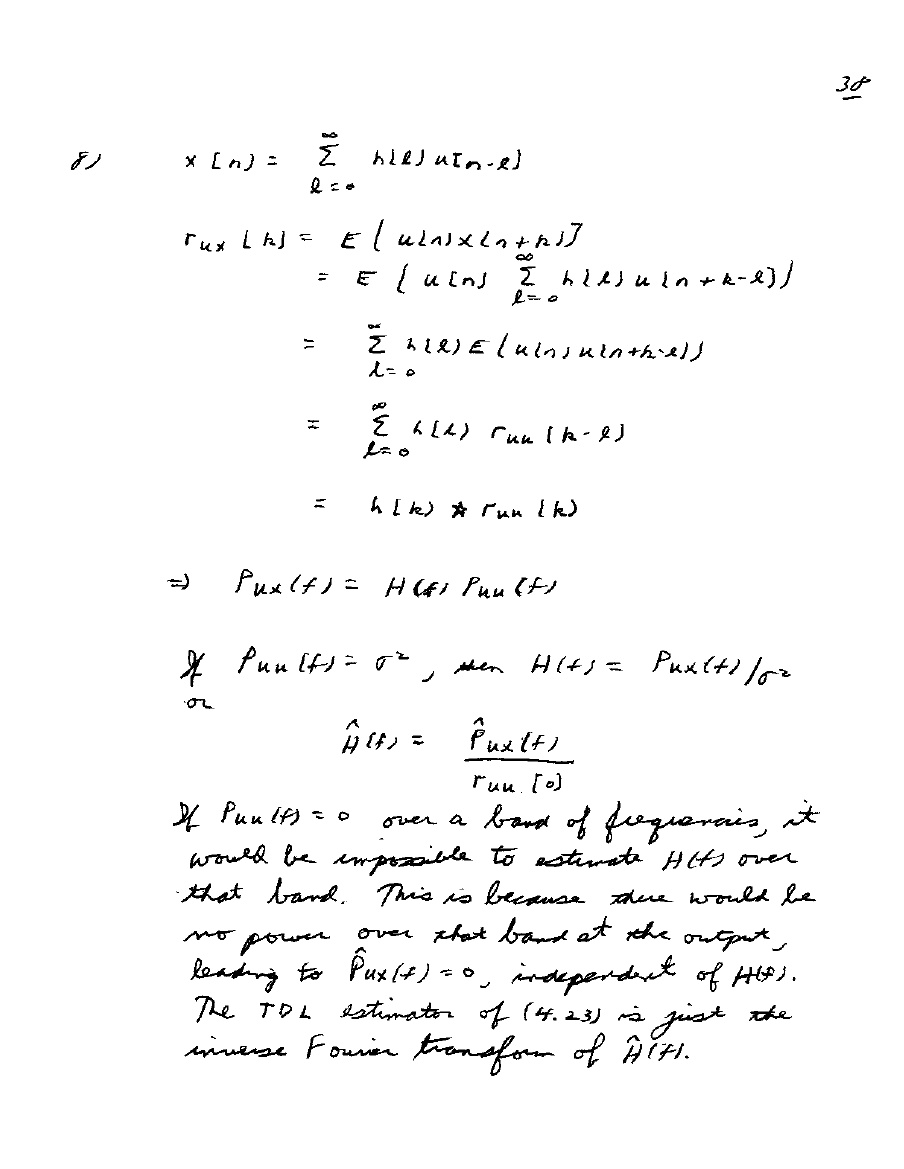 38
8) x[n] = ∞ Σ l=0 h[l] u[n-l]
r_ux[k] = E[u[n]x[n+k]]
= E{u[n] ∞ Σ l=0 h[l] u[n+k-l]}
= ∞ Σ l=0 h[l] E(u[n]u[n+k-l])
= ∞ Σ l=0 h[l] r_uu[k-l]
= h[k] ★ r_uu[k]
⇒ P_ux(f) = H(f) P_uu(f)
If P_uu(f) = σ², then H(f) = P_ux(f)/σ²
or
Ĥ(f) = P̂_ux(f)
r_uu[0]
If P_uu(f) = 0 over a band of frequencies, it
would be impossible to estimate H(f) over
that band. This is because there would be
no power over that band at the output,
leading to P̂_ux(f) = 0, independent of H(f).
The TDL estimator of (4.23) is just the
inverse Fourier transform of Ĥ(f).